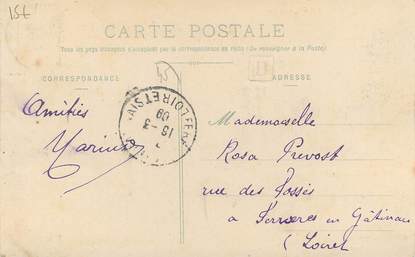 15t
CARTE POSTALE
Tous les pays étrangers n'acceptent pas la correspondance au recto (Se renseigner à la Poste)
CORRESPONDANCE
ADRESSE
45
D
Amitiés
Marius
18-3
09
Mademoiselle
Rosa Prevost
rue des Fossés
à Ferrières en Gâtinais
(Loiret